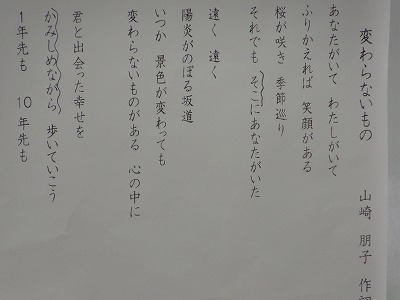 変わらないもの
山崎 朋子 作詞
あなたがいて わたしがいて
ふりかえれば 笑顔がある
桜が咲き 季節巡り
それでも そこにあなたがいた
遠く 遠く
陽炎がのぼる坂道
いつか 景色が変わっても
変わらないものがある 心の中に
君と出会った幸せを
かみしめながら 歩いていこう
1年先も 10年先も